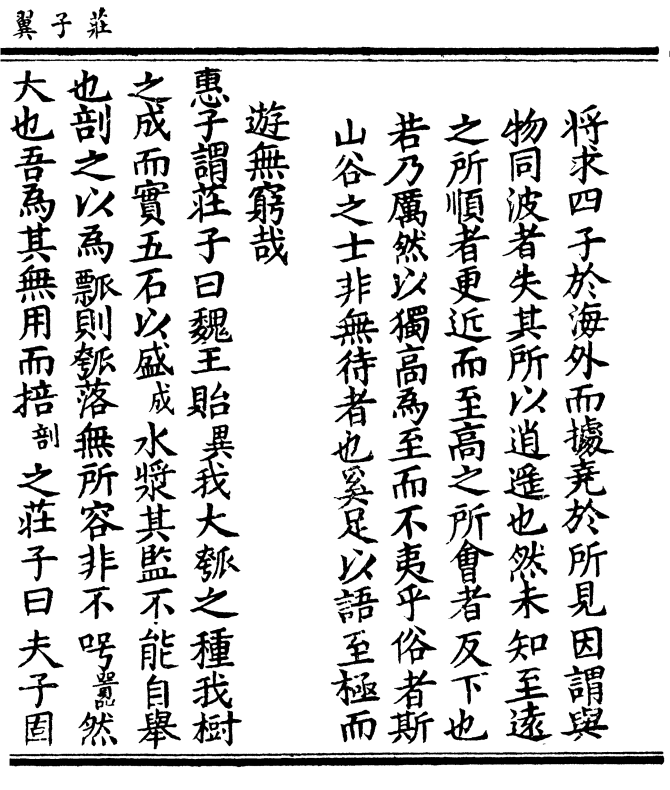 莊子翼
將求四子於海外而據堯於所見因謂與
物同波者失其所以逍遙也然未知至遠
之所順者更近而至高之所會者反下也
若乃厲然以獨高為至而不夷乎俗者斯
山谷之士非無待者也奚足以語至極而
遊無窮哉
惠子謂莊子曰魏王貽異我大瓠之種我樹
之成而實五石以盛成水漿其監不能自舉
也剖之以為瓢則瓠落無所容非不呺囂記然
大也吾為其無用而掊剖之莊子曰夫子固